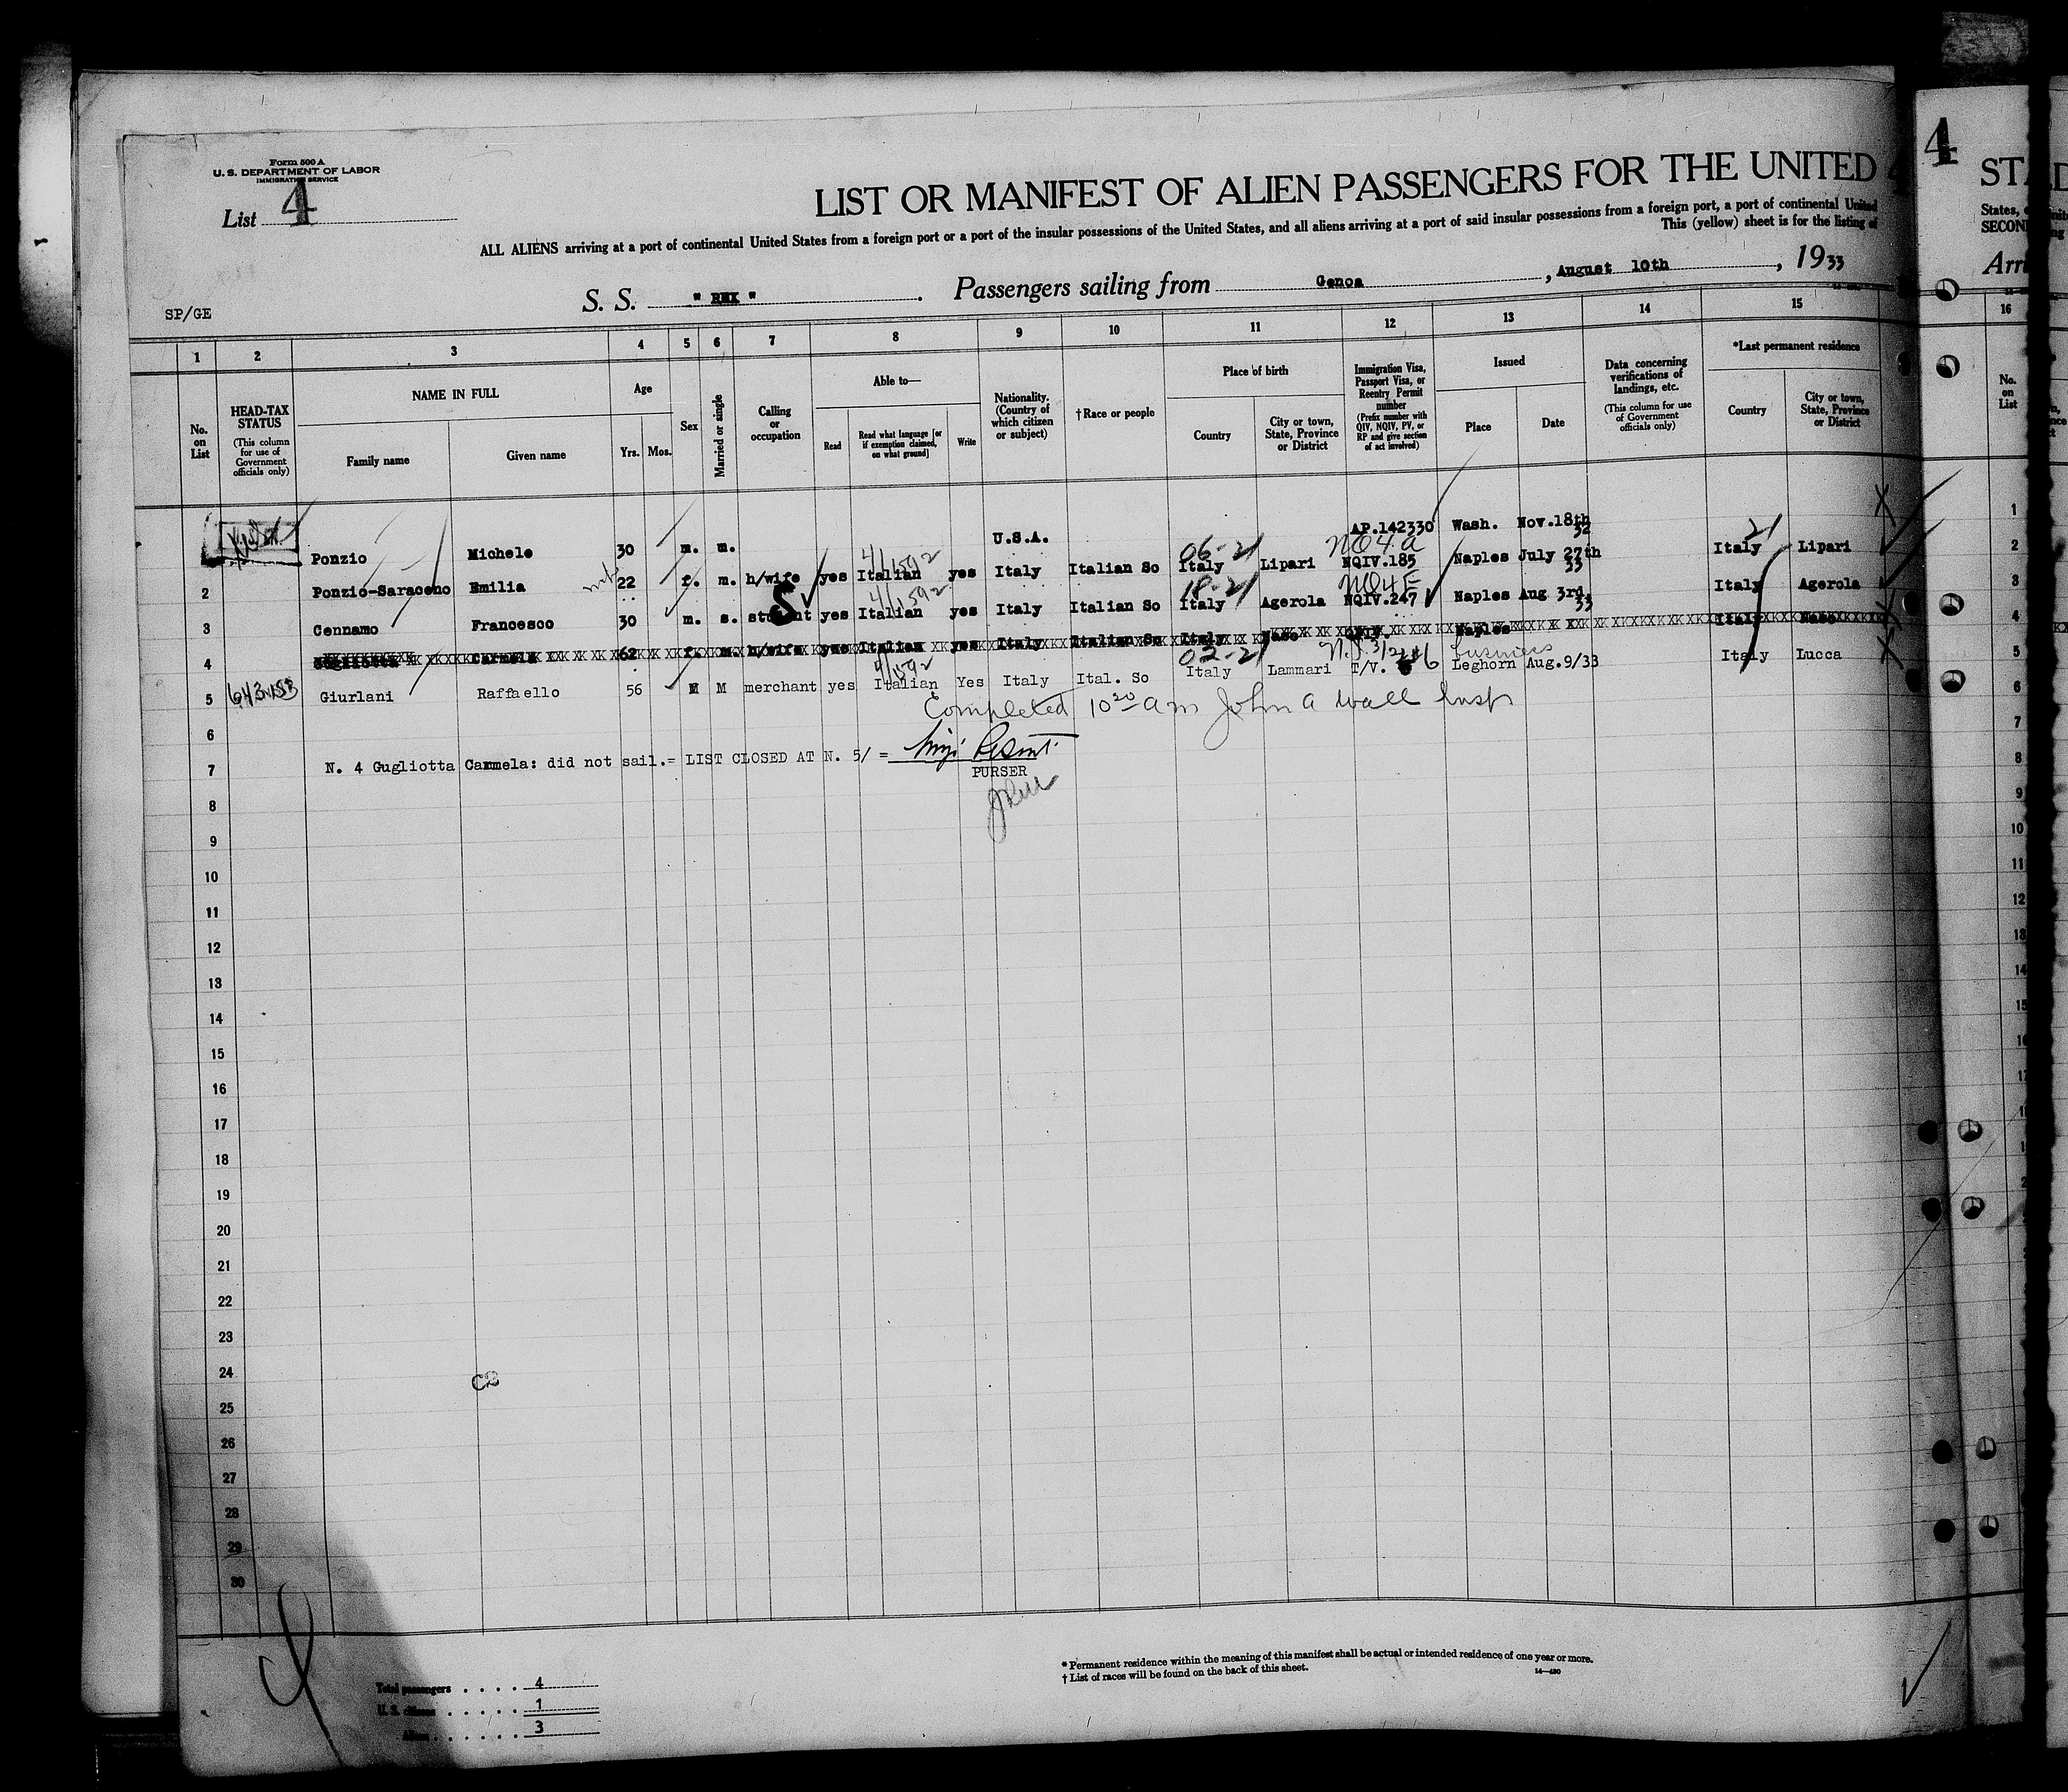 Form 500 A
U. S. DEPARTMENT OF LABOR
IMMIGRATION SERVICE
List 4
LIST OR MANIFEST OF ALIEN PASSENGERS FOR THE UNITED
ALL ALIENS arriving at a port of continental United States from a foreign port or a port of the insular possessions of the United States, and all aliens arriving at a port of said insular possessions from a foreign port, a port of continental United
This (yellow) sheet is for the listing of
S. S. " REX " . Passengers sailing from Genoa , August 10th , 1933
SP/GE
1 2 3 4 5 6 7 8 9 10 11 12 13 14 15
No. on List
HEAD-TAX STATUS
(This column for use of Government officials only)
NAME IN FULL
Family name
Given name
Age
Yrs. Mos.
Sex
Married or single
Calling or occupation
Able to—
Read
Read what language [or if exemption claimed, on what ground]
Write
Nationality. (Country of which citizen or subject)
†Race or people
Place of birth
Country
City or town, State, Province or District
Immigration Visa, Passport Visa, or Reentry Permit number
(Prefix number with QIV, NQIV, PV, or RP and give section of act involved)
Issued
Place
Date
Data concerning verifications of landings, etc.
(This column for use of Government officials only)
*Last permanent residence
Country
City or town, State, Province or District
Ponzio Michele 30 m. m. U.S.A. AP.142330 Wash. Nov.18th 32
06-21 NQ4a 21
2 Ponzio-Saraceno Emilia 22 f. m. h/wife yes Italian yes Italy Italian So Italy Lipari NQIV.185 Naples July 27th 33 Italy Lipari
18-21 NQ4E
3 Cennamo Francesco 30 m. s. student yes Italian yes Italy Italian So Italy Agerola NQIV.247 Naples Aug 3rd, 33 Italy Agerola
4 Gugliotta Carmela 62 f. m. h/wife yes Italian yes Italy Italian So Italy Naso Naples Italy Naso
02-21 business
5 643-153 Giurlani Raffaello 56 M M merchant yes Italian Yes Italy Ital. So Italy Lammari T/V. Leghorn Aug.9/33 Italy Lucca
Completed 10 20 am John A Wall Insp
6
7 N. 4 Gugliotta Carmela: did not sail.= LIST CLOSED AT N. 5/ =
PURSER
8
9
10
11
12
13
14
15
16
17
18
19
20
21
22
23
24
C2
25
26
27
28
29
30
Total passengers . . . . . 4
U. S. citizens . . . . . 1
Aliens . . . . . . 3
* Permanent residence within the meaning of this manifest shall be actual or intended residence of one year or more.
† List of races will be found on the back of this sheet.
14—430
4
STA
States,
SECON
Arri
16
No. on List
1
2
3
4
5
6
7
8
9
10
11
12
13
14
15